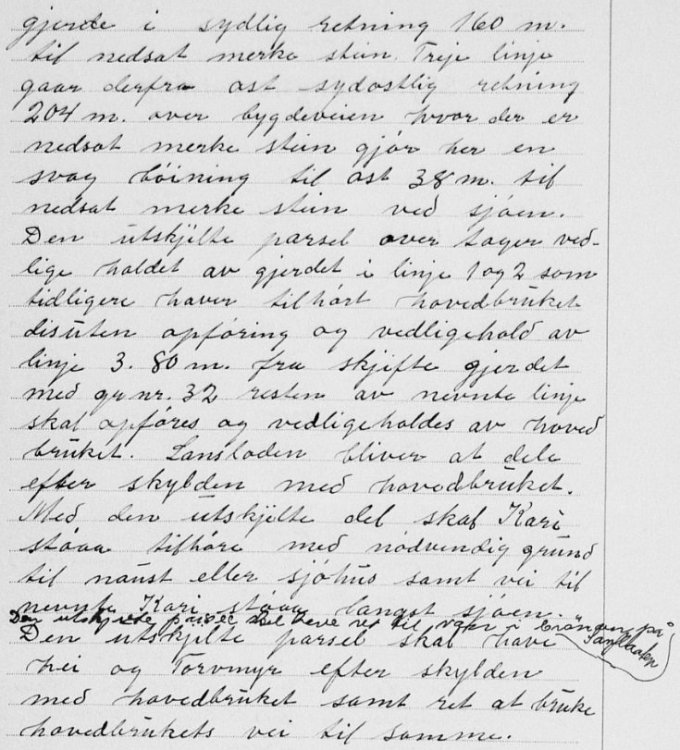 gjerde i sydlig retning 160 m.
til nedsat merke stein. Treje linje
gaar derfra øst sydøstlig retning
204 m. over bygdeveien hvor der er
nedsat merke stein gjør her en
svag bøining til øst 38 m. til
nedsat merke stein ved sjøen.
Den utskjelte parsel over tager ved-
lige holdet av gjerdet i linje 1 og 2 som
tidligere haver tilhørt hovedbruket
disuten opføring og vedligehold av
linje 3. 80 m. fra skjifte gjerdet
med gr.nr. 32 resten av nevnte linje
skal opføres og vedligeholdes av hoved
bruket. Lansloden bliver at dele
efter skylden med hovedbruket.
Med den utskjelte del skal Kari
støaa tilhøre med nødvendig grund
til naust eller sjøhus samt vei til
nevnte Kari støaa langst sjøen.
Den utskjelte parsel skal have ret til i paa
Den utskjelte parsel skal have
hei og Torvmyr efter skylden
med hovedbruket samt ret at bruke
hovedbrukets vei til samme.